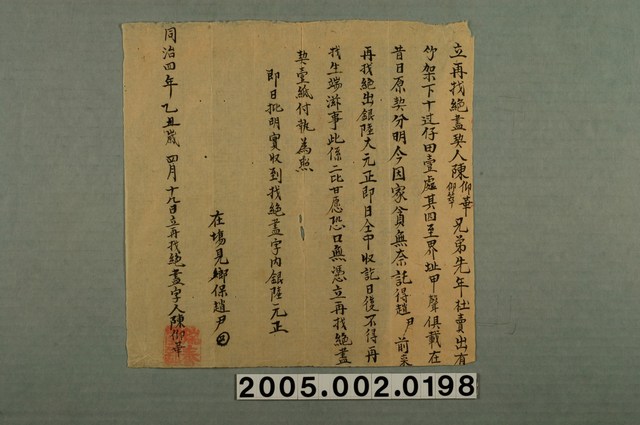 立再找絕盡契人陳仰華仰等兄弟先年杜賣出有
竹架下十过仔田壹處其四至界址甲聲俱載在
昔日原契分明今因家貧無奈託得趙尹前來
再找絕出銀陸大元正即日仝中收訖日後不得再
找生端滋事此係二比甘愿恐口無憑立再找絕盡
契壹紙付執為照
即日批明實收到找絕盡字內銀陸元正
在場見鄉保趙尹
同治四年乙丑歲四月十九日立再找絕盡字人陳仰華
2005.002.0198